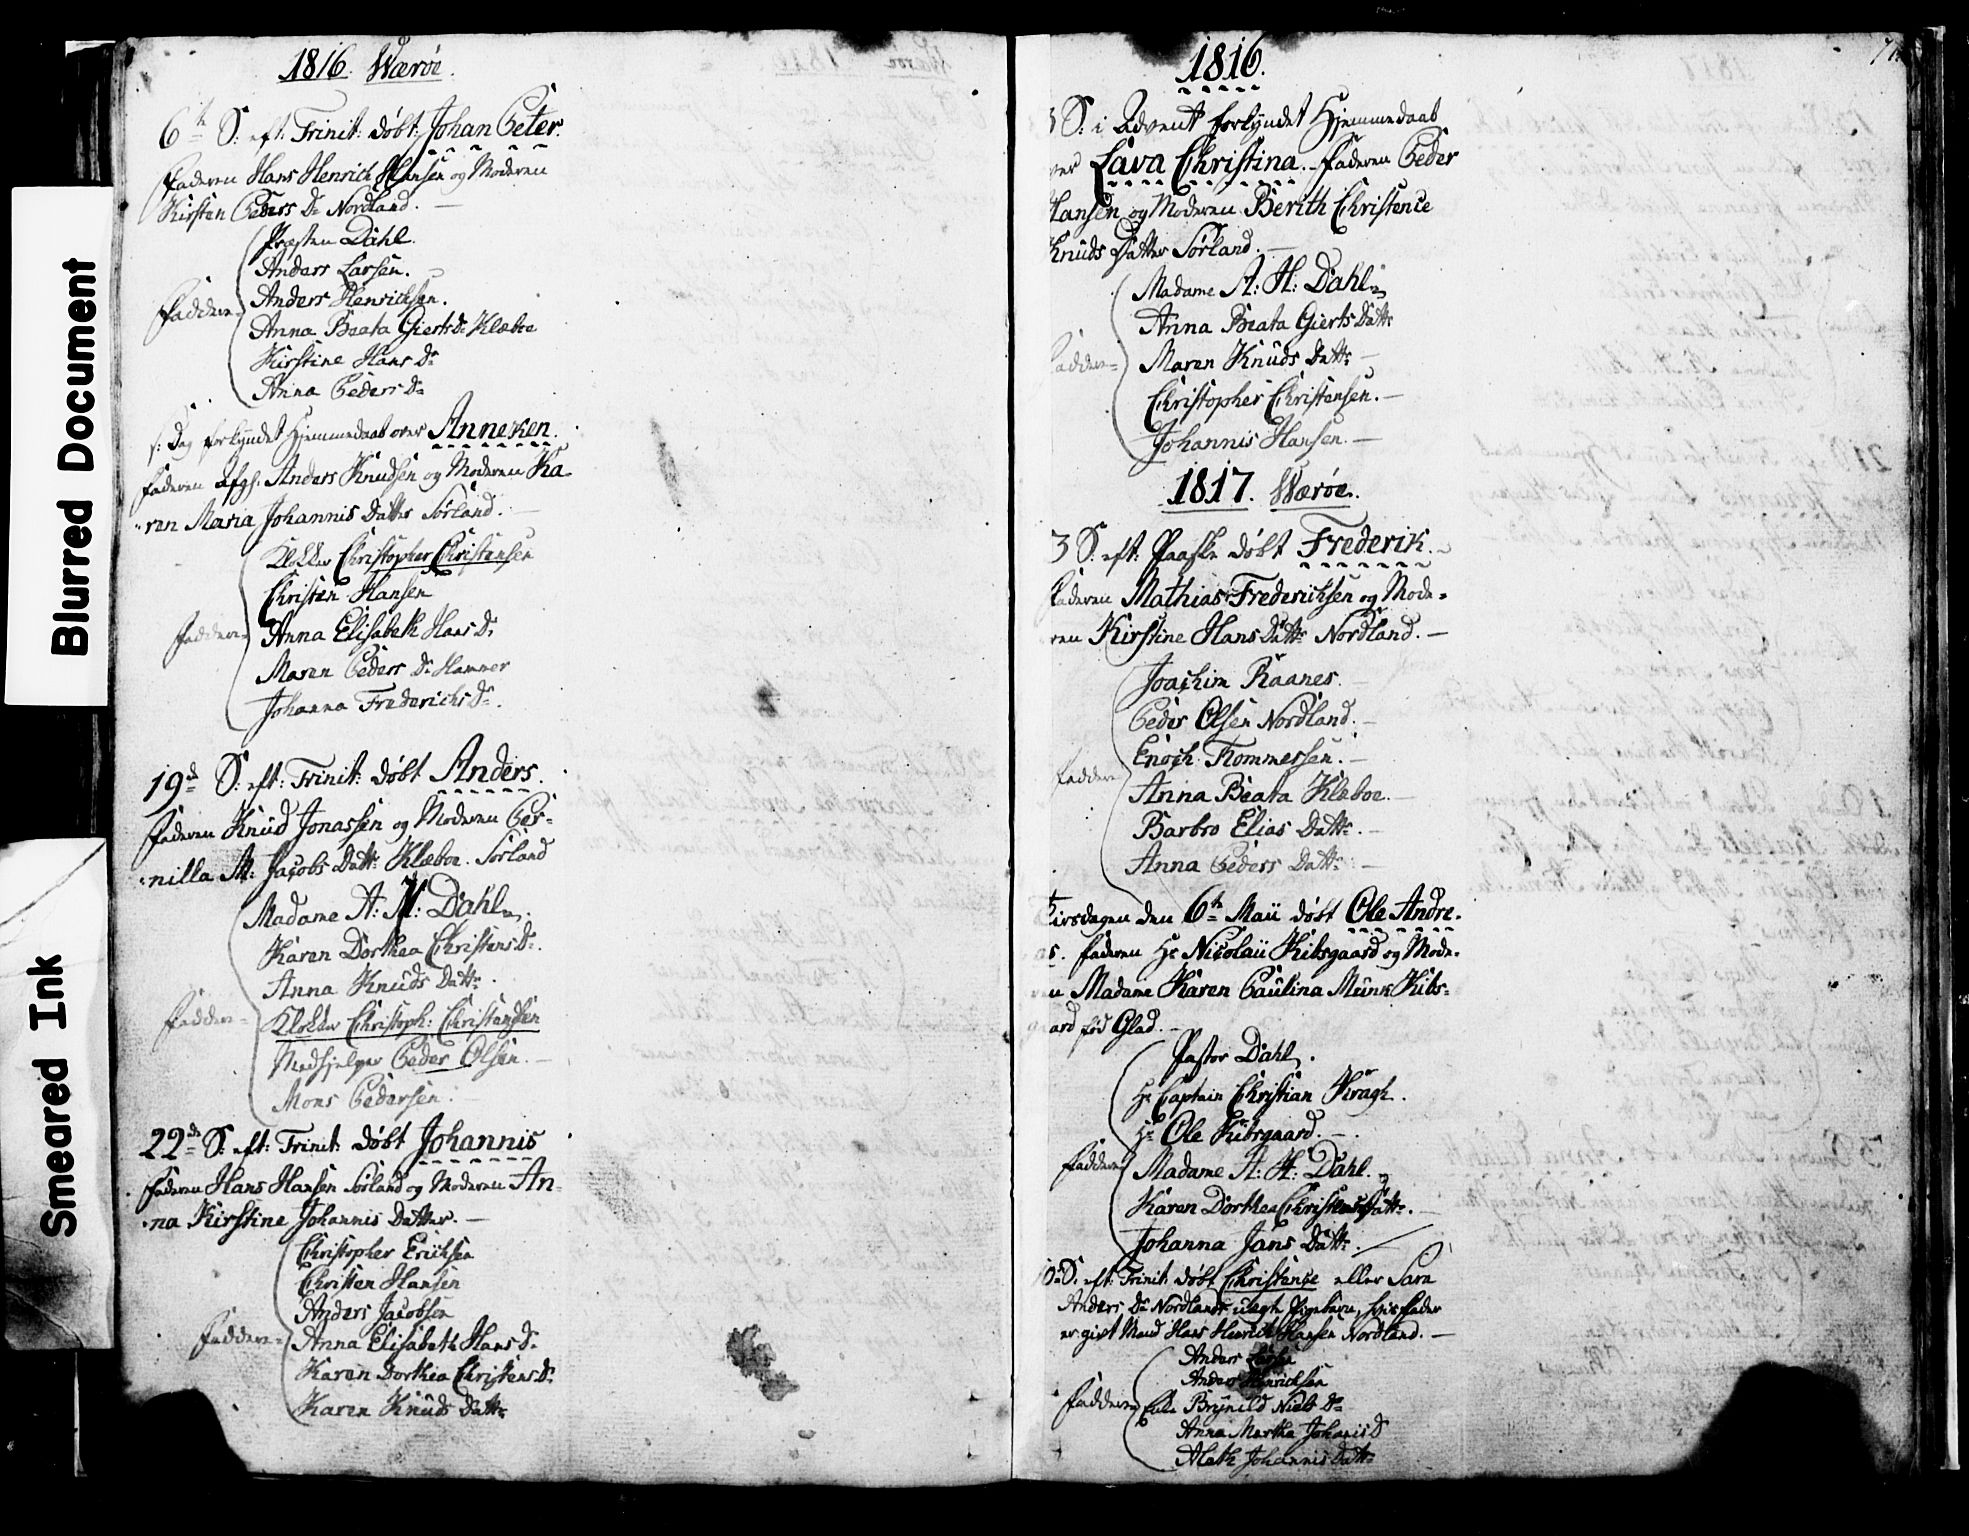 Blurred Document
Smeared Ink
1816. Værøe.
6te S: eft: Trinit: døbt Johan Peter.
Faderen Hans Henrich Hansen og Moderen
Kirsten Peders Dr Nordland. —
Præsten Dahl.
Anders Larsen.
Anders Henrichsen.
Faddere
Anna Beata Gierts Dr Klæboe
Kirstine Hans Dr
Anna Peders Dr
s: Dag forkyndet Hjemmedaab over Anneken.
Faderen Afg: Anders Knudsen og Moderen Ka-
ren Maria Johannis Datter Sørland. —
Klokker Christopher Christensen
Christen Hansen
Faddere
Anna Elisabeth Hans Dr
Maren Peders Dr Hammer
Johanna Friderichs Dr.
19de S: eft: Trinit: døbt Anders.
Faderen Knud Jonassen og Moderen Per-
nilla M: Jacobs Dattr: Klæboe. Sørland
Madame A: H: Dahl.
Karen Dorthea Christens Dr.
Anna Knuds Dattr.
Faddere
Klokker Christoph: Christensen
Medhjelper Peder Olsen. —
Mons Pedersen. —
22de S: eft: Trinit: døbt Johannis
Faderen Hans Hansen Sørland og Moderen An-
na Kirstine Johannis Datter. —
Christopher Erichsen
Christen Hansen
Anders Jacobsen
Faddere
Anna Elisabeth Hans Dr
Karen Dorthea Christens Dr
Karen Knuds Dattr
1816.
3 S: i Advent forkyndet Hjemmedaab
over Lava Christina. Faderen Peder
Hansen og Moderen Berith Christence
Knuds Datter Sørland. —
Madame A: H: Dahl
Anna Beata Gierts Dattr
Faddere
Maren Knuds Dattr —
Christopher Christensen. —
Johannis Hansen. —
1817. Værøe.
3 S: eft: Paaske døbt Frederik.
Faderen Mathias Frederichsen og Mode-
ren Kirstine Hans Dattr Nordland. —
Joachim Raanes. —
Peder Olsen Nordland. —
Enoch Tommessen. —
Faddere
Anna Beata Klæboe. —
Barbro Elias Dattr. —
Anna Peders Dattr: —
Tirsdagen den 6te Maii døbt Ole Andre-
as. Faderen Hr Nicolaii Kibsgaard og Mode-
ren Madame Karen Paulina Munk Kibs-
gaard fød Glad. —
Pastor Dahl.
Hr Captein Christian Kragh.
Hr Ole Kibsgaard. —
Faddere
Madame A: H: Dahl.
Karen Dorthea Christens Dattr. —
Johanna Jans Dattr.
S: eft: Trinit: døbt Christence eller Sara
Anders Dr Nordlands uægte Pigebarn, hvis Fader
er gift Mand Hans Henrich Hansen Nordland. —
Anders Larsen
Anders Henrichsen
Faddere
Brynild Niels Dr
Anna Martha Johanis D
Math Johannis Dattr